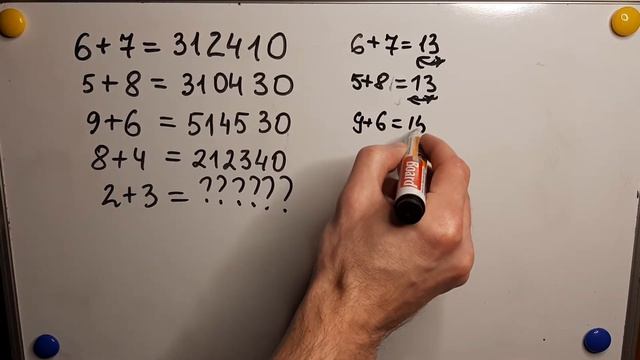 6+7=312410
5+8=310430
9+6=514530
8+4=212340
2+3=??????
6+7=13
5+8=13
9+6=15
Board